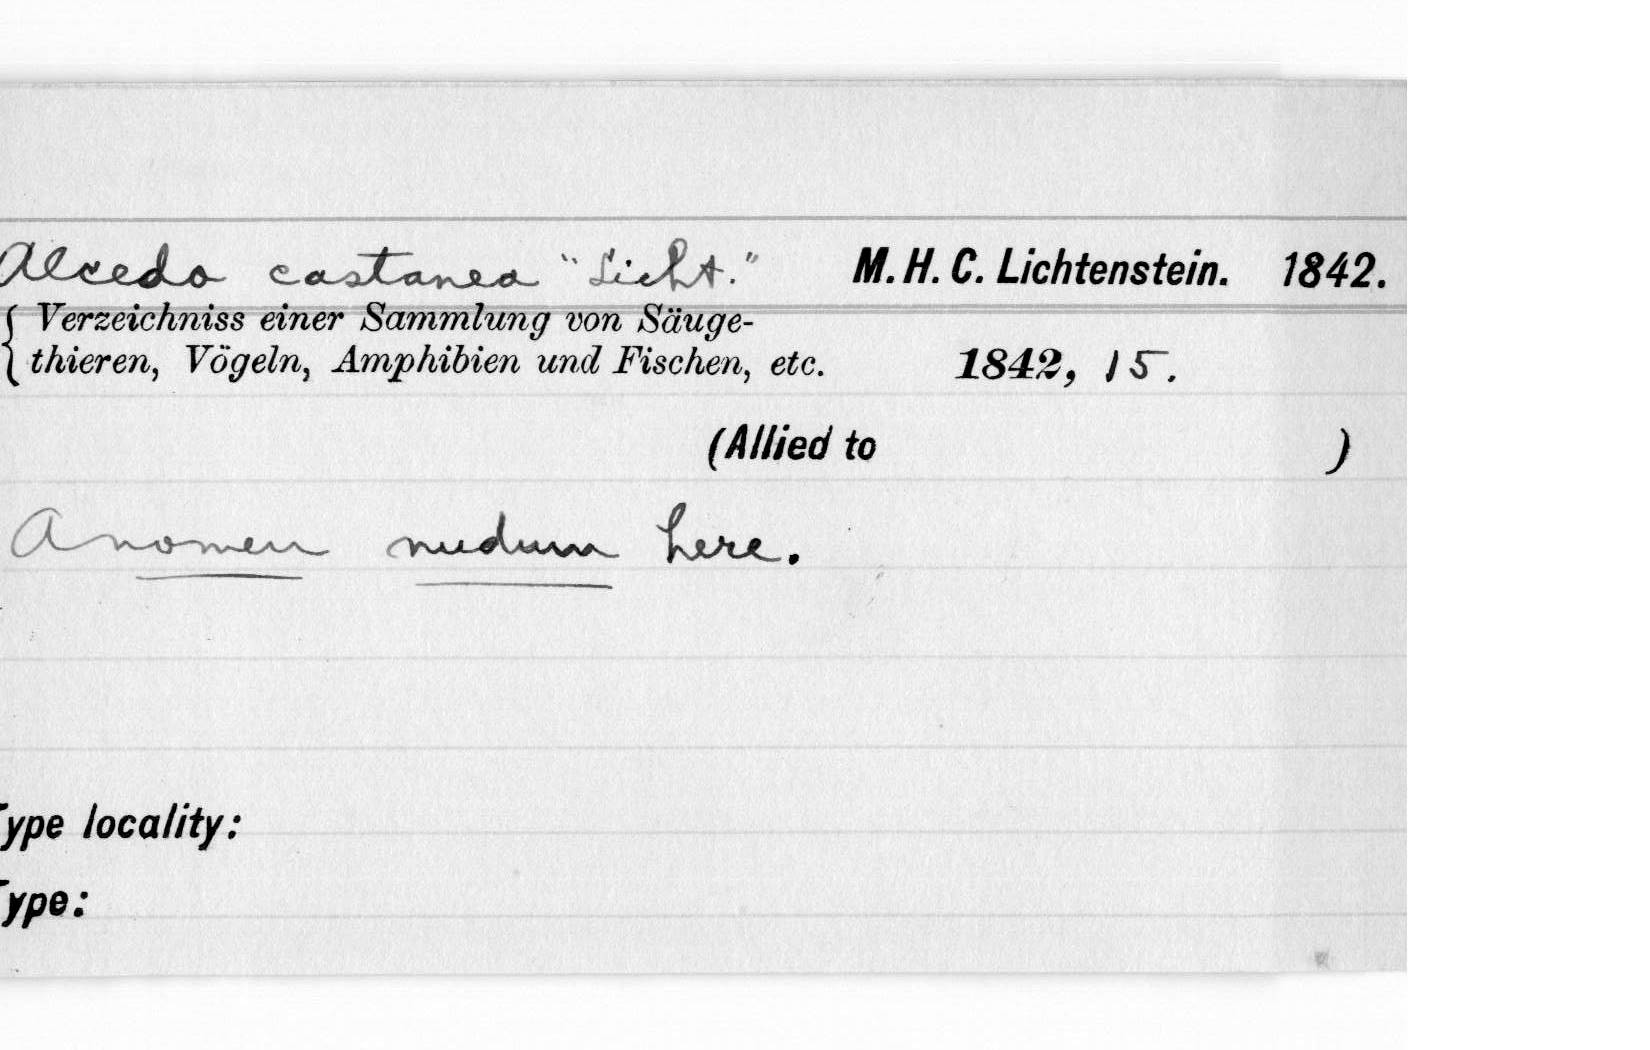 Alcedo castanea "Licht." M. H. C. Lichtenstein. 1842.
Verzeichniss einer Sammlung von Säuge-
thieren, Vögeln, Amphibien und Fischen, etc. 1842, 15.
(Allied to )
A nomen nudum here.
Type locality:
Type: